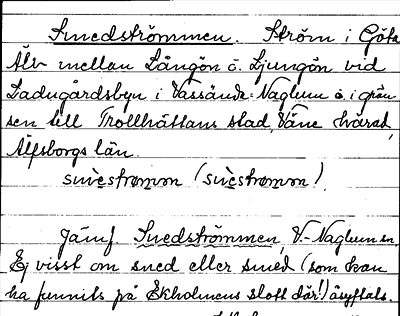 Smedströmmen. Ström i Göta
Älv mellan Långön o. Ljungön vid
Ladugårdsbyn i Vassända-Naglum o. i grän-
sen till Trollhättans stad, Väne härad,
Älfsborgs län.
Jämf. Snedströmmen, V.-Naglum sn.
Ej visst om sned eller smed (som kan
ha funnits på Ekholmens slott där!) åsyftats.